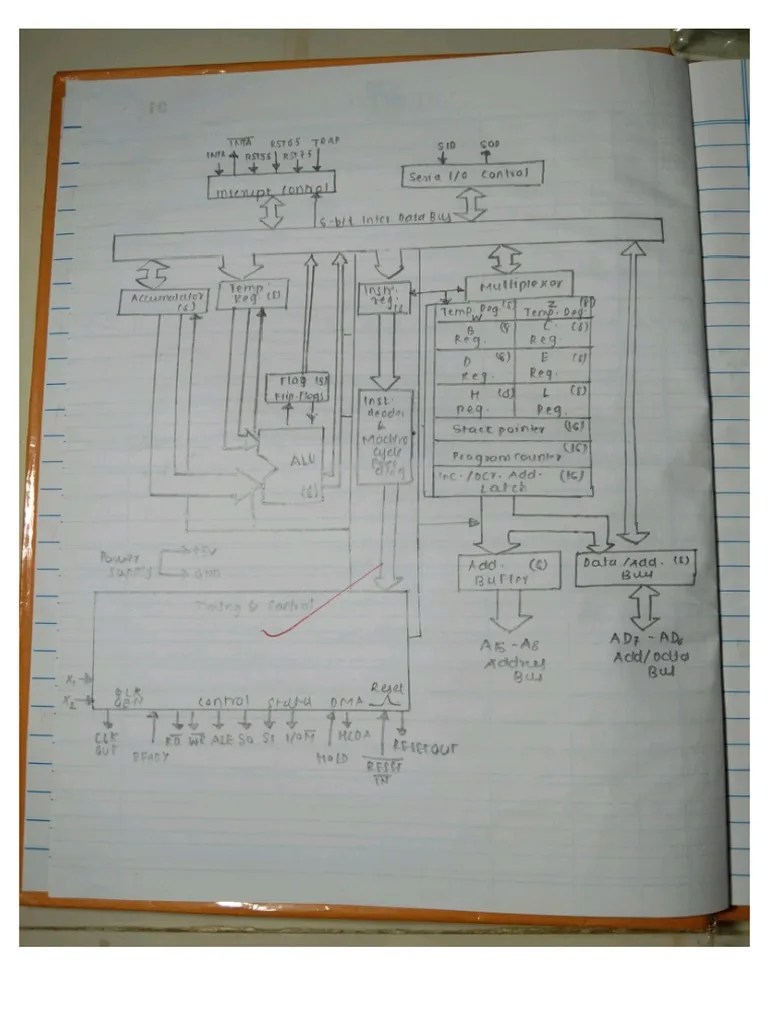 INTA RST6.5 TRAP
INTR RST5.5 RST7.5
Interrupt Control
SID SOD
Seria I/O Control
8-bit Inter Data Bus
Accumulator
(8)
Temp.
Reg. (8)
Instr.
reg.
Multiplexor
Temp. Reg.
W
Z (8)
Temp. Reg.
B (8)
Reg.
C (8)
Reg.
D (8)
Reg.
E (8)
Reg.
H
Reg.
L (8)
Reg.
Stack pointer (16)
Program counter (16)
Inc./Dcr. Add. (16)
Latch
Flag (8)
Flip-Flogs
ALU
(8)
Inst.
decoder
&
Machine
cycle
Power
supply
+5V
GND
Timing & Control
Add. (8)
Buffer
Data/Add. (8)
A15 - A8
Address
Bus
Add/Data
Bus
X1
X2
CLK
GEN
Control Status DMA Reset
CLK
OUT
READY
RD WR ALE S0 S1 I/OM
HOLD
HLDA
RESET
IN
RESET OUT